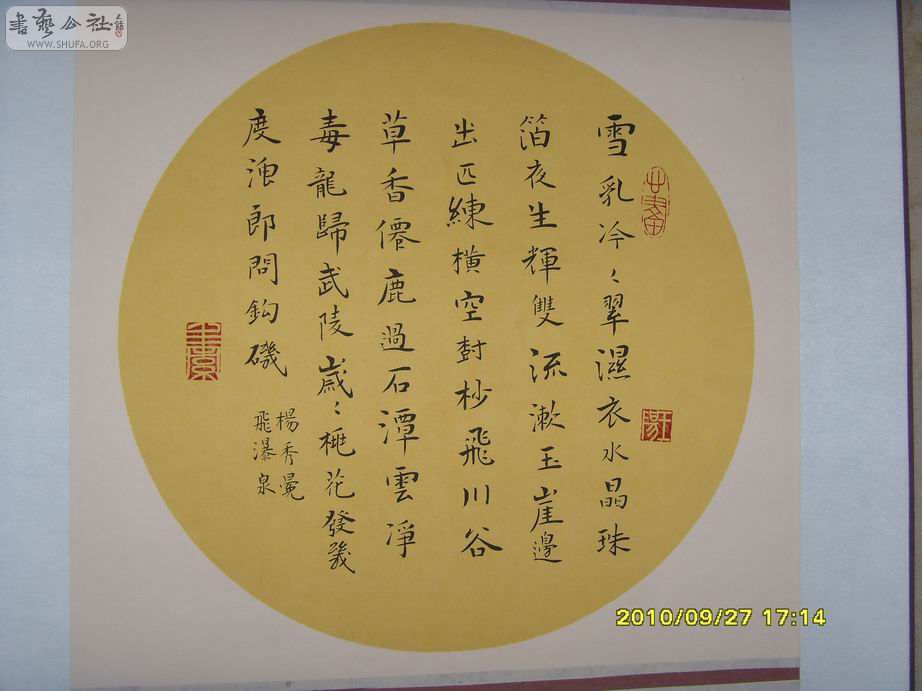 書藝公社
WWW.SHUFA.ORG
雪乳冷〻翠濕衣水晶珠
箔夜生輝雙流漱玉崖邊
出匹練橫空尌杪飛川谷
草香僊鹿過石潭雲凈
毒龍歸武陵歲〻桃花發幾
度漁郎問釣磯
楊秀
飛瀑泉
2010/09/27 17:14